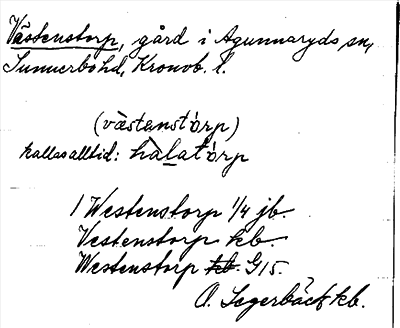 Västenstorp, gård i Agunnaryds sn,
Sunnerbo hd, Kronob. l.
(vàstenstórp)
kallas alltid: hàlatórp
1 Westenstorp 1/4 jb.
Vestenstorp kb.
Westenstorp kb. G15.
O. Segerbäck kb.